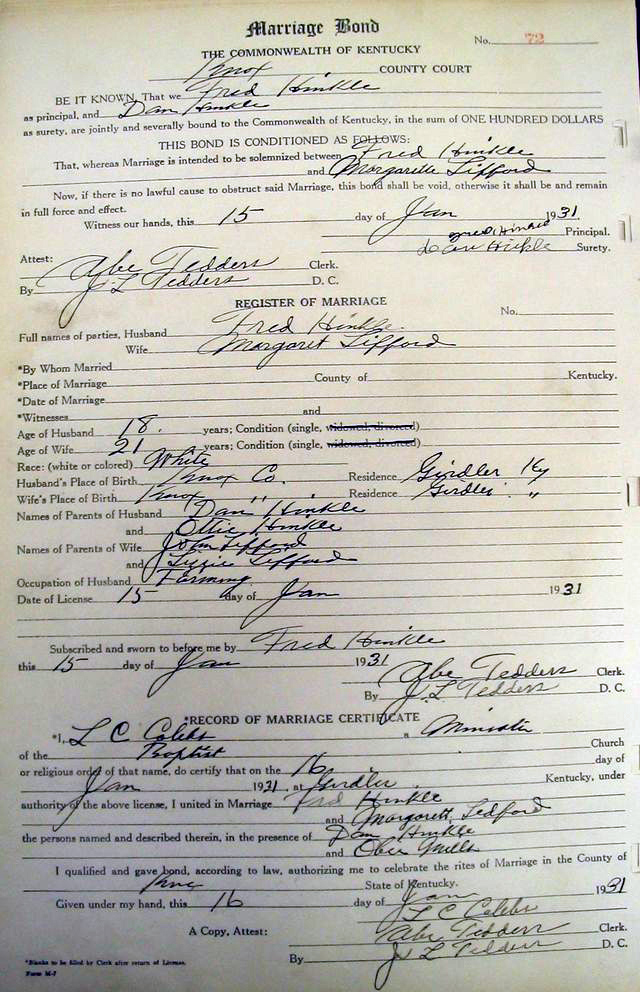 Marriage Bond
No. 72
THE COMMONWEALTH OF KENTUCKY
Knox COUNTY COURT
BE IT KNOWN, That we Fred Hinkle
as principal, and Dan Hinkle
as surety, are jointly and severally bound to the Commonwealth of Kentucky, in the sum of ONE HUNDRED DOLLARS
THIS BOND IS CONDITIONED AS FOLLOWS:
That, whereas Marriage is intended to be solemnized between Fred Hinkle
and Margarette Lifford
Now, if there is no lawful cause to obstruct said Marriage, this bond shall be void, otherwise it shall be and remain
in full force and effect.
Witness our hands, this 15 day of Jan 1931
Fred Hinkle Principal.
Dan Hinkle Surety.
Attest: Abe Tedders Clerk.
By J L Tedders D. C.
REGISTER OF MARRIAGE
No.
Full names of parties, Husband Fred Hinkle.
Wife Margaret Lifford
*By Whom Married
*Place of Marriage County of Kentucky.
*Date of Marriage
*Witnesses and
Age of Husband 18. years; Condition (single, widowed, divorced)
Age of Wife 21 years; Condition (single, widowed, divorced)
Race: (white or colored) White
Husband's Place of Birth Knox Co. Residence Girdler Ky
Wife's Place of Birth Knox " " Residence Girdler "
Names of Parents of Husband Dan Hinkle
and Ollie Hinkle
Names of Parents of Wife John Lifford
and Lizzie Lifford
Occupation of Husband Farming
Date of License 15 day of Jan 1931
Subscribed and sworn to before me by Fred Hinkle
this 15 day of Jan 1931
Abe Tedders Clerk.
By J. L Tedders D. C.
*RECORD OF MARRIAGE CERTIFICATE
*I, L C Calebs a Minister
of the Baptist Church
or religious order of that name, do certify that on the 16 day of
Jan 1931, at Girdler Kentucky, under
authority of the above license, I united in Marriage Fred Hinkle
and Margarett Ledford
the persons named and described therein, in the presence of Dan Hinkle
and Obie Mills
I qualified and gave bond, according to law, authorizing me to celebrate the rites of Marriage in the County of
Knox State of Kentucky.
Given under my hand, this 16 day of Jan 1931
L C Calebs
A Copy, Attest: Abe Tedders Clerk.
By J L Tedders D. C.
*Blanks to be filled by Clerk after return of License.
Form M-7